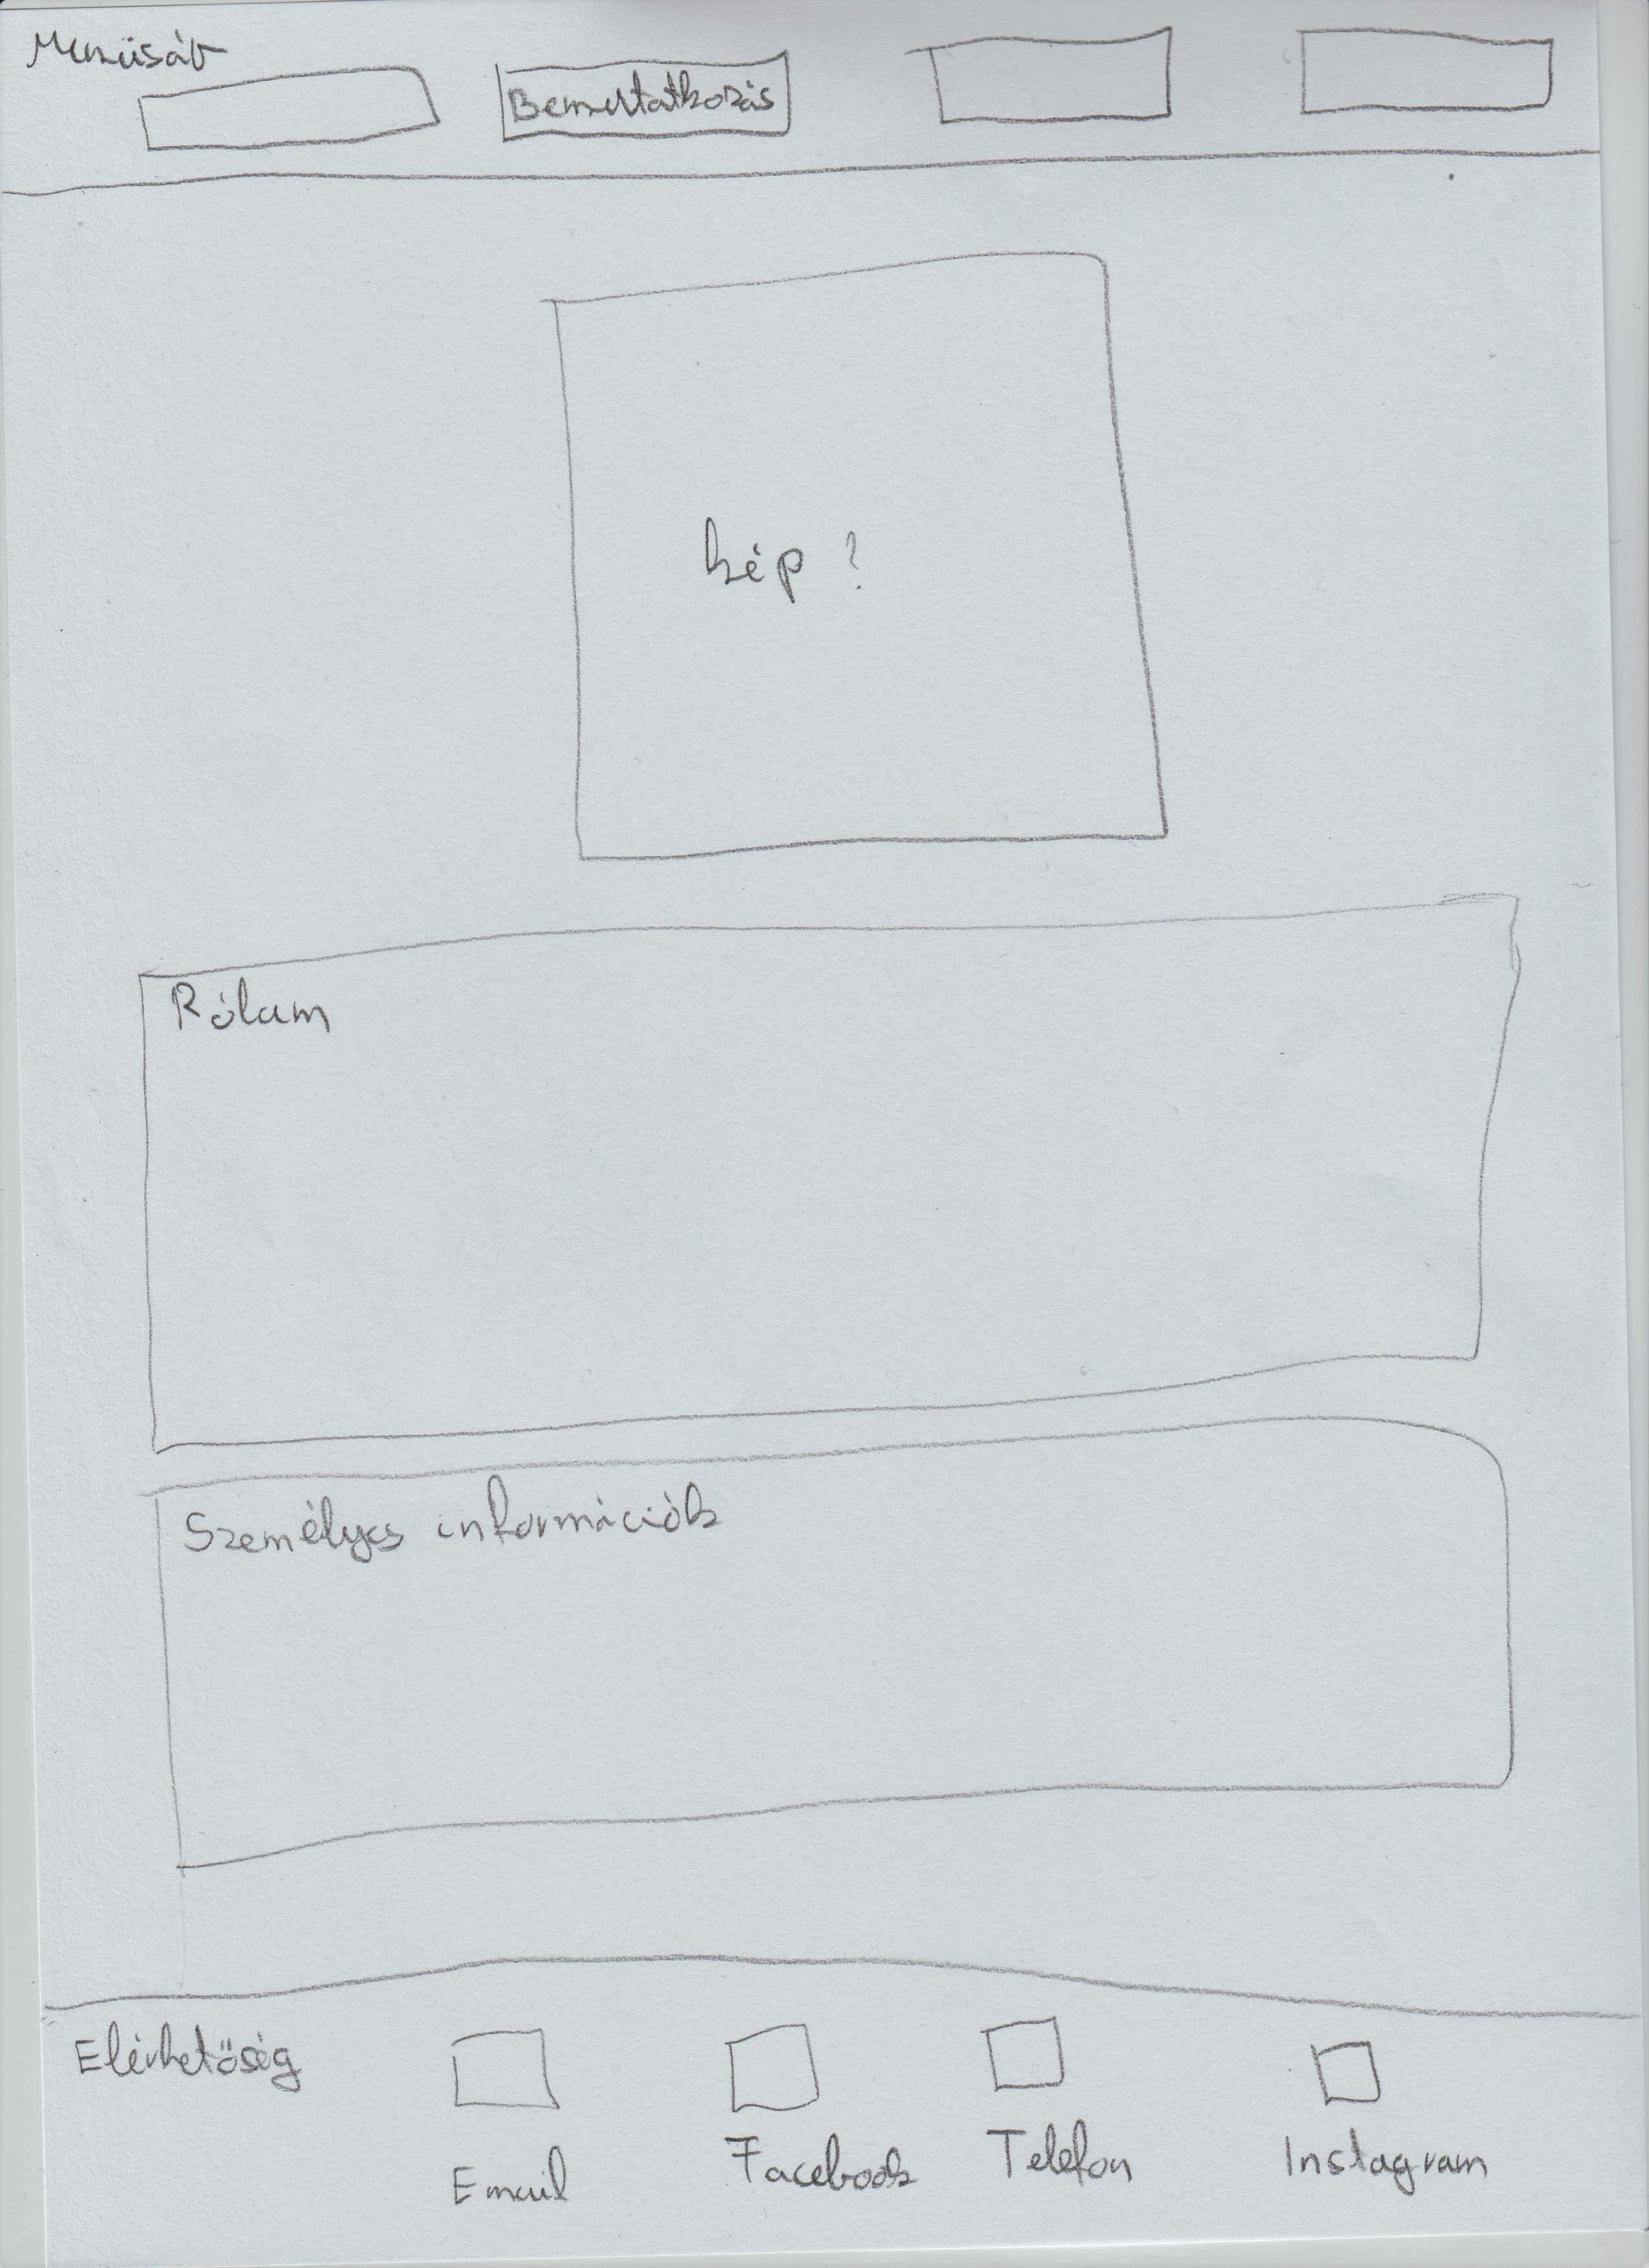 Menüsáv
Bemutatkozás
kép ?
Rólam
Személyes információk
Elérhetőség
Email
Facebook
Telefon
Instagram